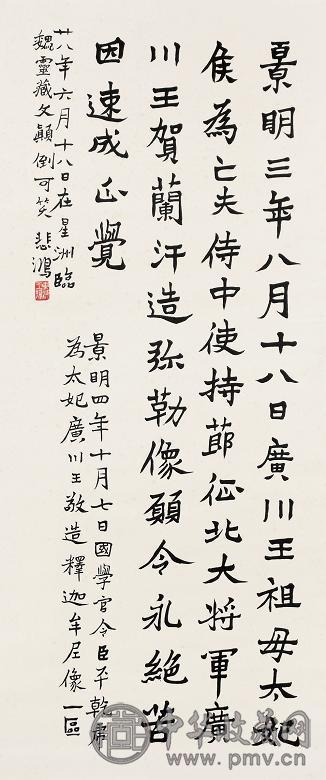 景明三年八月十八日廣川王祖母太妃
侯為亡夫侍中使持莭征北大将軍廣
川王賀蘭汗造弥勒像願令永絶苦
因速成正覺
廿八年六月十八日在星洲臨
魏靈藏文顛倒可笑 悲鴻
景明四年十月七日國學官令臣平乾虎
為太妃廣川王敬造釋迦牟尼像一區
中华收藏网
www.pmv.cn